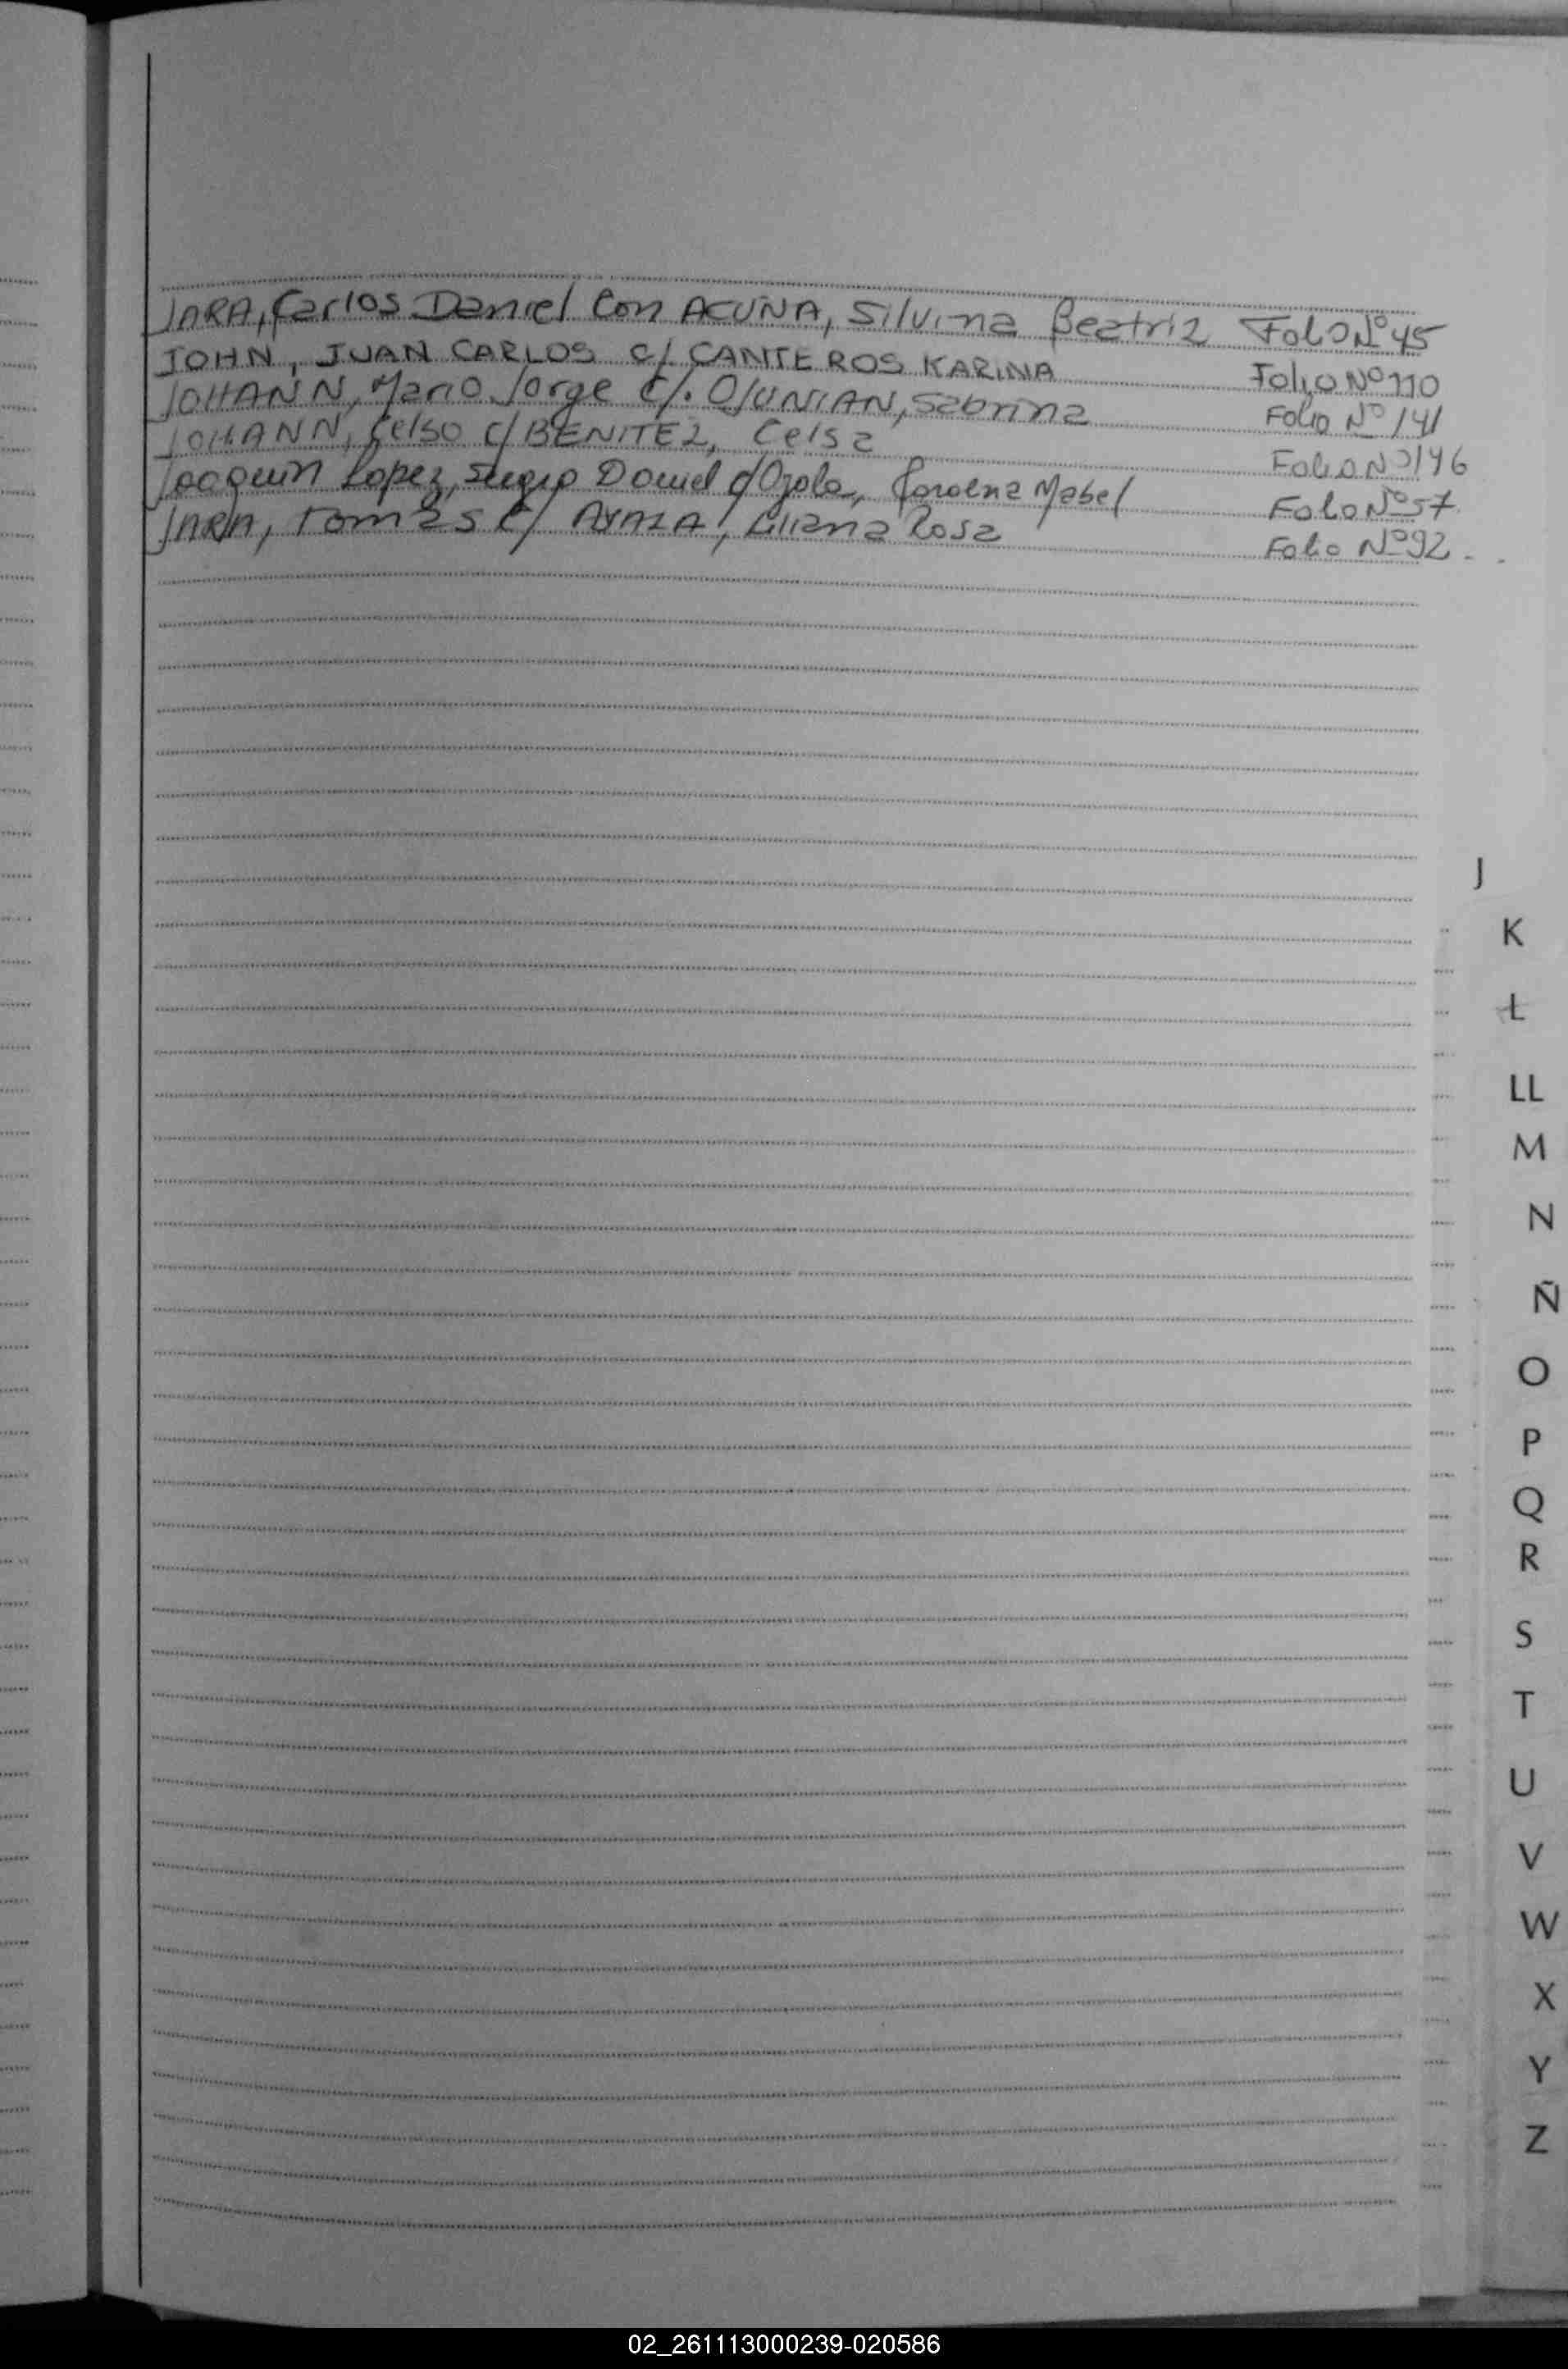 JARA, Carlos Daniel Con ACUÑA, Silvina Beatriz Folio Nº 45
JOHN, JUAN CARLOS c/ CANTEROS KARINA Folio Nº 110
JOHANN, Mario Jorge c/. OJUNIAN, Sabrina Folio Nº 141
JOHANN, Celso c/ BENITEZ, Celsa Folio Nº 146
Joaquin Lopez, Sergio Daniel c/ Ojola, Carolina Mabel Folio Nº 57
JARA, Tomas c/ AYALA, Liliana Rosa Folio Nº 92
J
K
L
LL
M
N
Ñ
O
P
Q
R
S
T
U
V
W
X
Y
Z
02_261113000239-020586